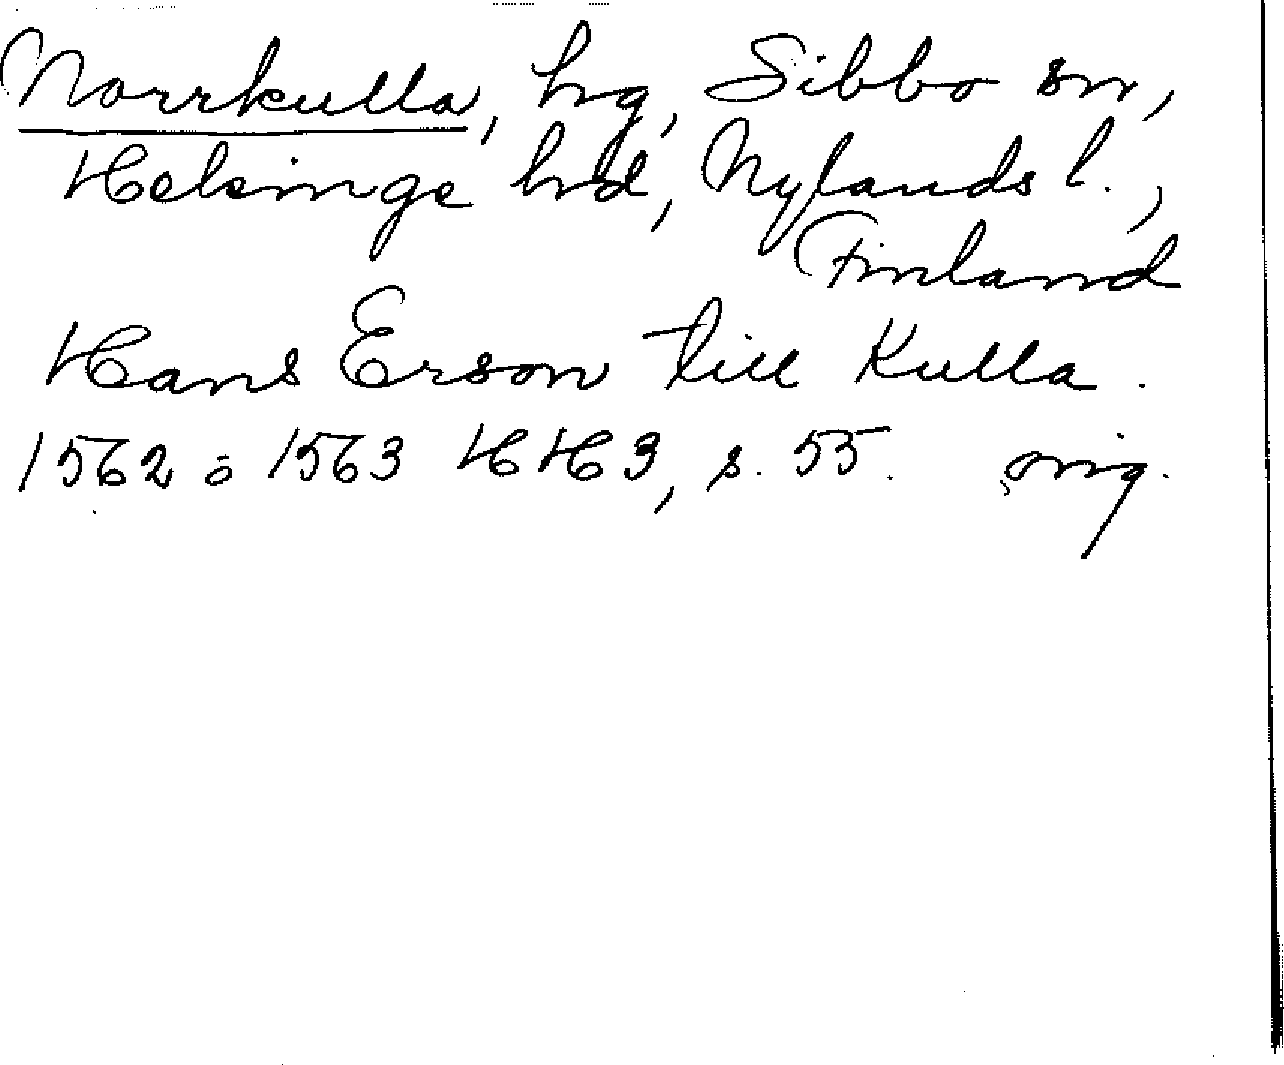 Norrkulla, hg, Sibbo sn,
Helsinge hd, Nylands l.,
Finland
Hans Erson till Kulla.
1562 o 1563 HH3, s. 55. orig.